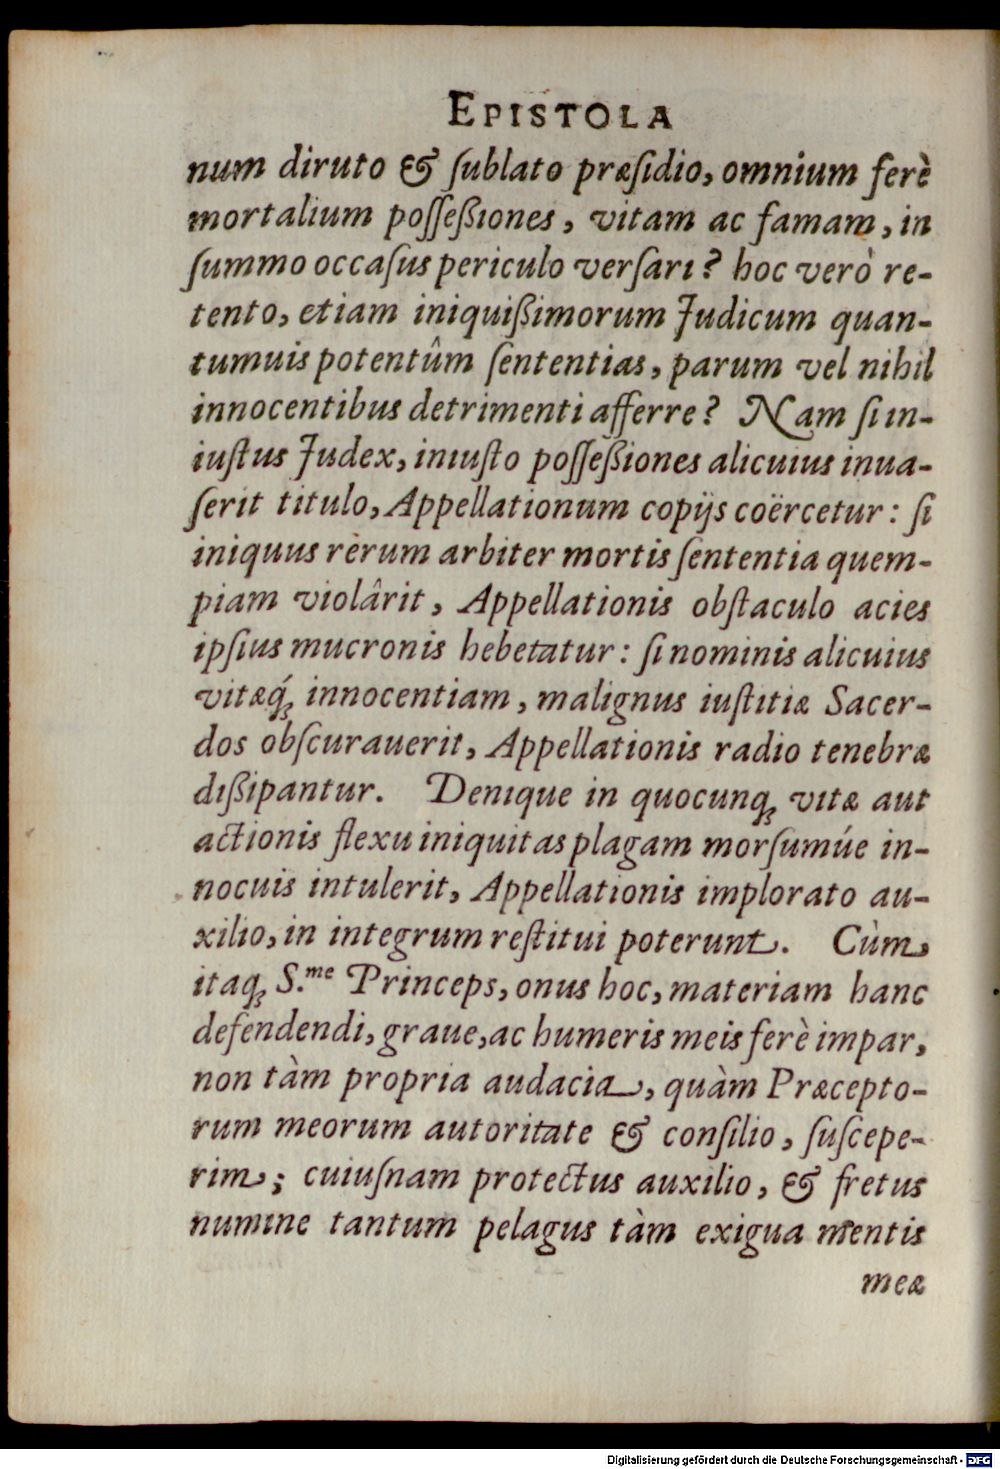 EPISTOLA
num diruto & ſublato præſidio, omnium ferè
mortalium poſſeßiones, vitam ac famam, in
ſummo occaſus periculo verſari? hoc verò re-
tento, etiam iniquißimorum Judicum quan-
tumuis potentûm ſententias, parum vel nihil
innocentibus detrimenti afferre? Nam ſi in-
iuſtus Judex, iniuſto poſſeßiones alicuius inua-
ſerit titulo, Appellationum copijs coërcetur: ſi
iniquus rerum arbiter mortis ſententia quem-
piam violârit, Appellationis obſtaculo acies
ipſius mucronis hebetatur: ſi nominis alicuius
vitæq́; innocentiam, malignus iuſtitiæ Sacer-
dos obſcurauerit, Appellationis radio tenebræ
dißipantur. Denique in quocunq; vitæ aut
actionis flexu iniquitas plagam morſumúe in-
nocuis intulerit, Appellationis implorato au-
xilio, in integrum reſtitui poterunt. Cùm
itaq; S.me Princeps, onus hoc, materiam hanc
defendendi, graue, ac humeris meis ferè impar,
non tàm propria audacia, quàm Præcepto-
rum meorum autoritate & conſilio, ſuſcepe-
rim; cuiuſnam protectus auxilio, & fretus
numine tantum pelagus tàm exigua mentis
meæ
Digitalisierung gefördert durch die Deutsche Forschungsgemeinschaft - DFG